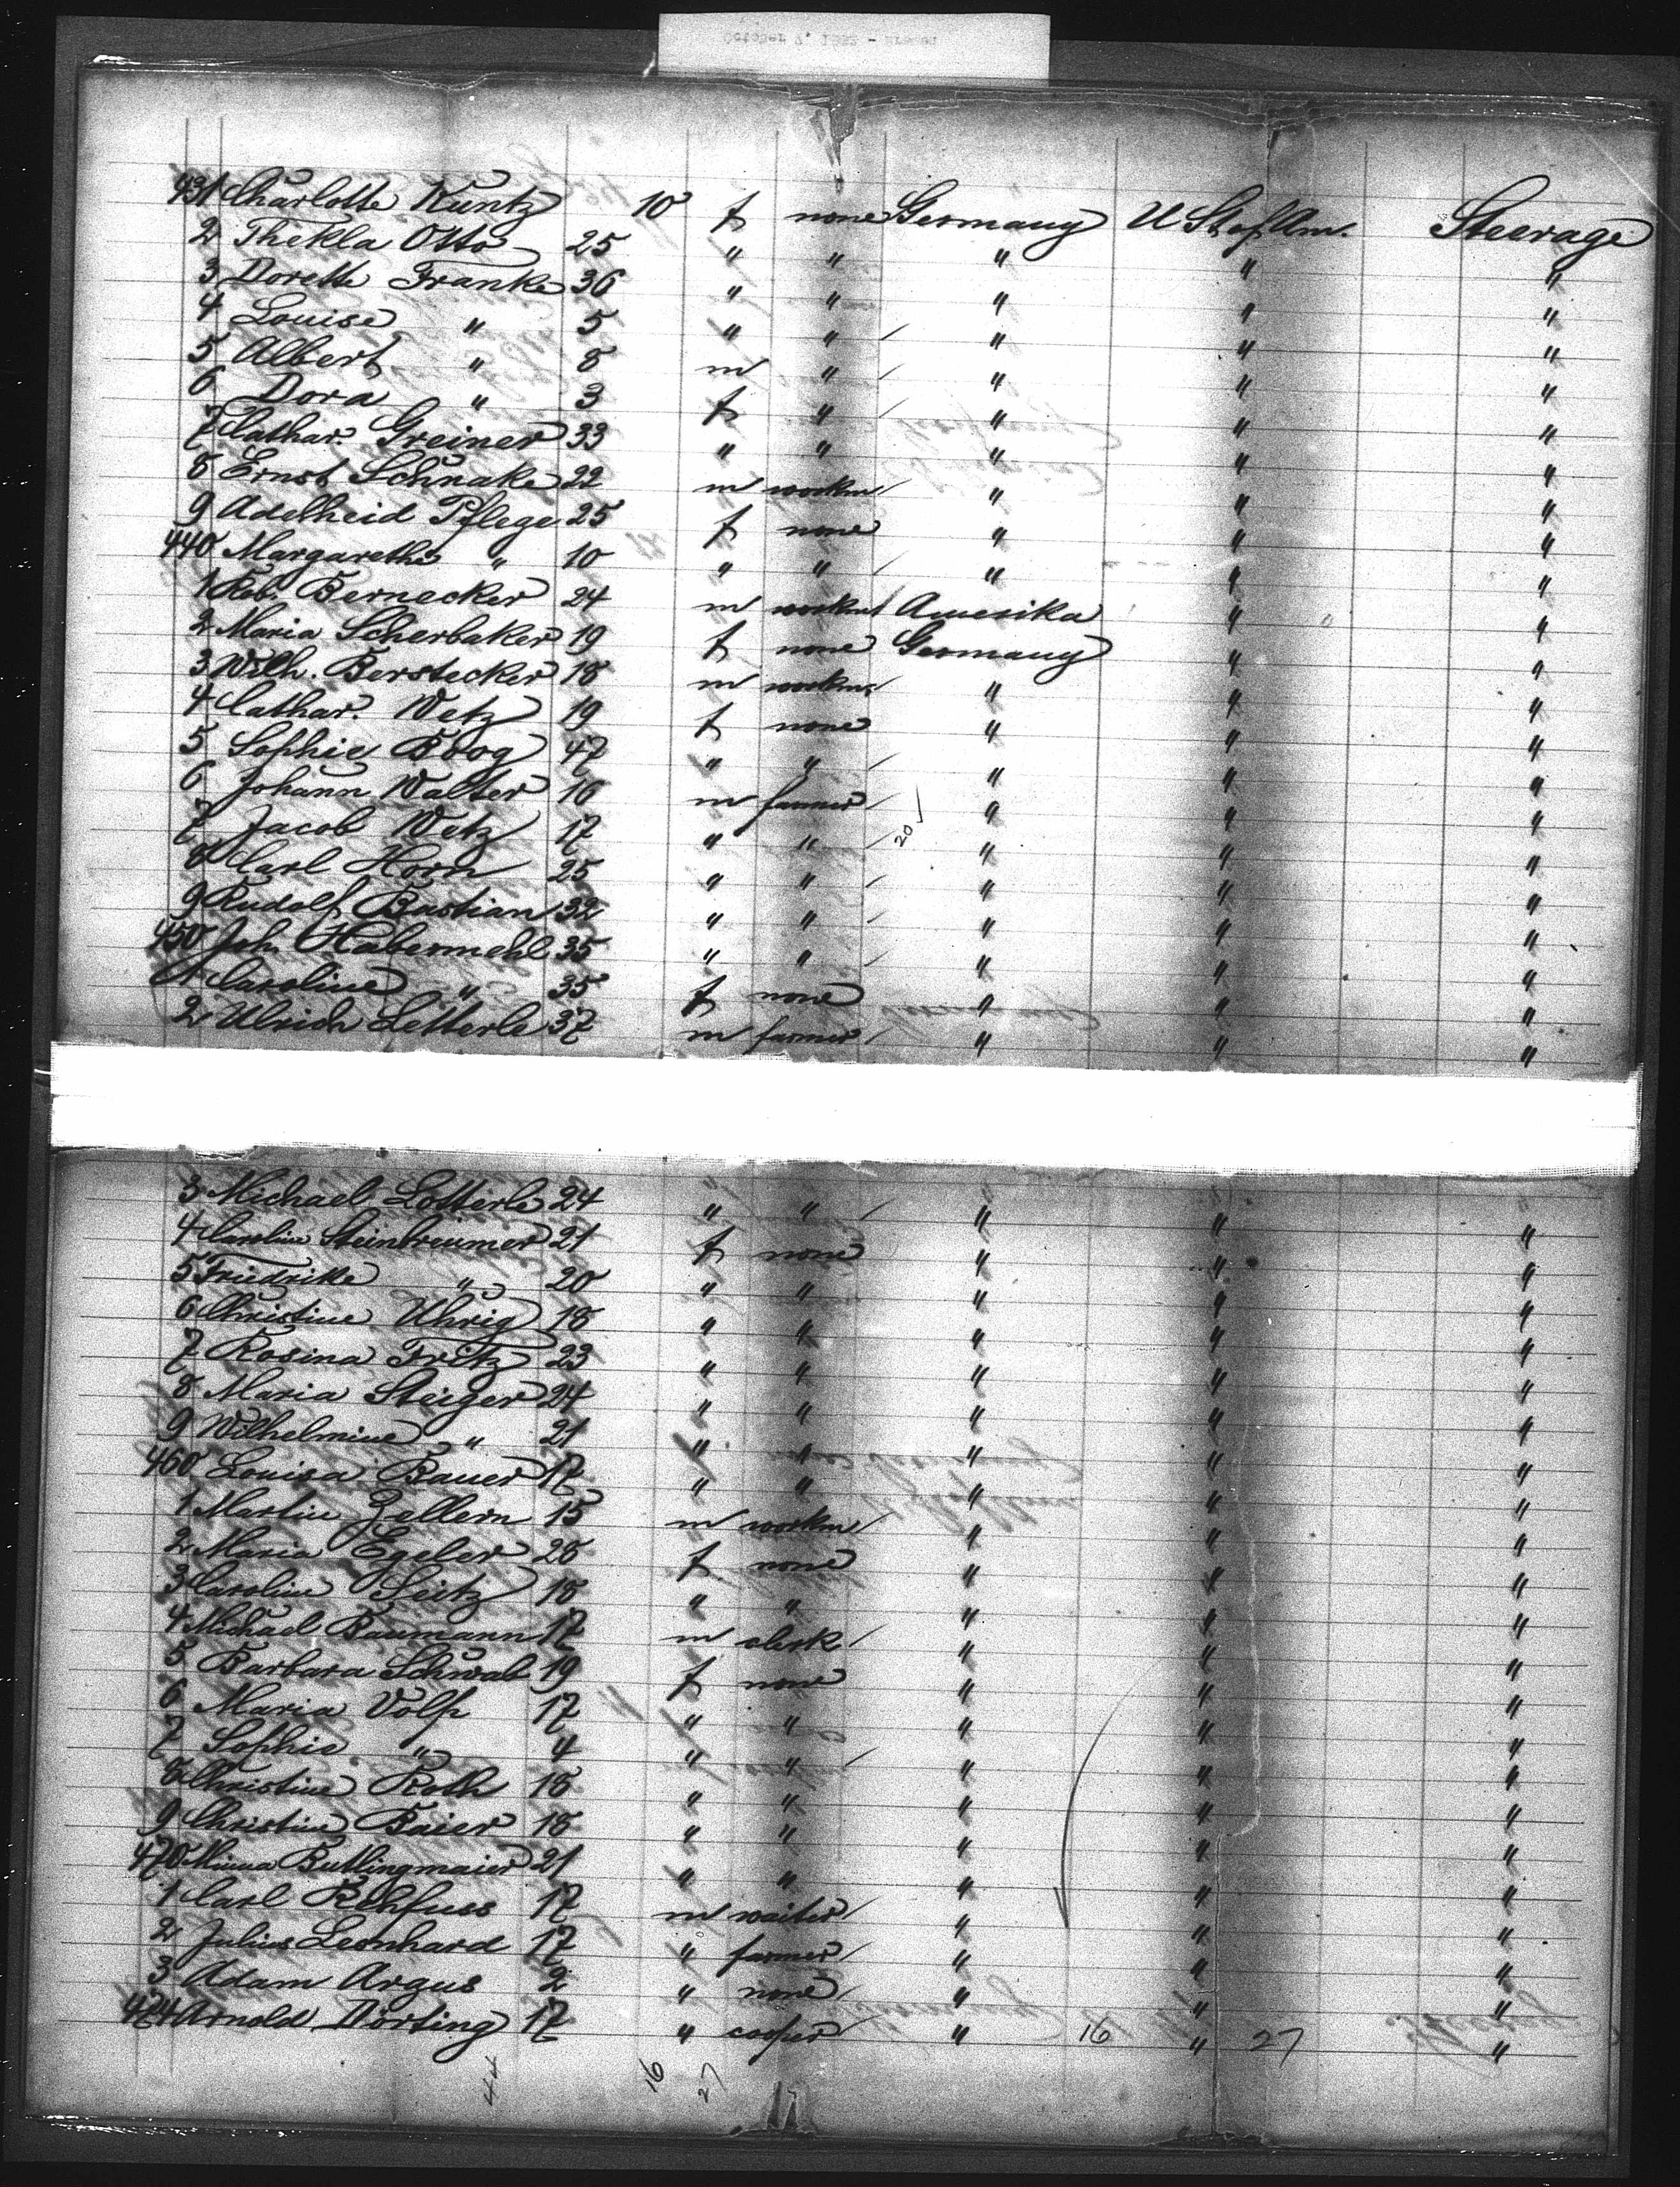 431 Charlotte Kuntz 10 f none Germany U St of Am. Steerage
2 Thekla Otto 25 " " " " "
3 Dorette Franke 36 " " " " "
4 Louise " 5 " " " " "
5 Albert " 8 m " " " "
6 Dora " 3 f " " " "
7 Cathar. Greiner 33 " " " " "
8 Ernst Schnake 22 m workm " " "
9 Adelheid Pflege 25 f none " " "
440 Margarethe " 10 " " " " "
1 Rob. Bernecker 24 m workm Amerika " "
2 Maria Scherbaker 19 f none Germany " "
3 Wilh. Berstecker 18 m workm " " "
4 Cathar. Wetz 19 f none " " "
5 Sophie Boog 47 " " " " "
6 Johann Walter 16 m farmer " " "
7 Jacob Wetz 17 " " 20 " " "
8 Carl Horn 25 " " " " "
9 Rudolf Bastian 32 " " " " "
450 Joh. Habermehl 35 " " " " "
1 Caroline " 35 f none " " "
2 Ulrich Letterle 37 m farmer " " "
3 Michael Lotterle 24 " " " " "
4 Caroline 21 f none " " "
5 Friedrike " 20 " " " " "
6 Christine Uhrig 18 " " " " "
7 Rosina Fritz 23 " " " " "
8 Maria Steiger 24 " " " " "
9 Wilhelmine " 21 " " " " "
460 Louisa Bauer 17 " " " " "
1 Martin Zellern 15 m workm " " "
2 Maria Egeler 28 f none " " "
3 Caroline Seitz 18 " " " " "
4 Michael Baumann 17 m clerk " " "
5 Barbara Schwab 19 f none " " "
6 Maria Volp 17 " " " " "
7 Sophie " 4 " " " " "
8 Christine Roth 18 " " " " "
9 Christine Baier 18 " " " " "
470 Minna Butlingmaier 21 " " " " "
1 Carl Rehfuss 17 m waiter " " "
2 Julius Leonhard 17 " farmer " " "
3 Adam Argus 2 " none " " "
474 Arnold Dörting 17 " cooper " 16 " 27 "
44 16 27